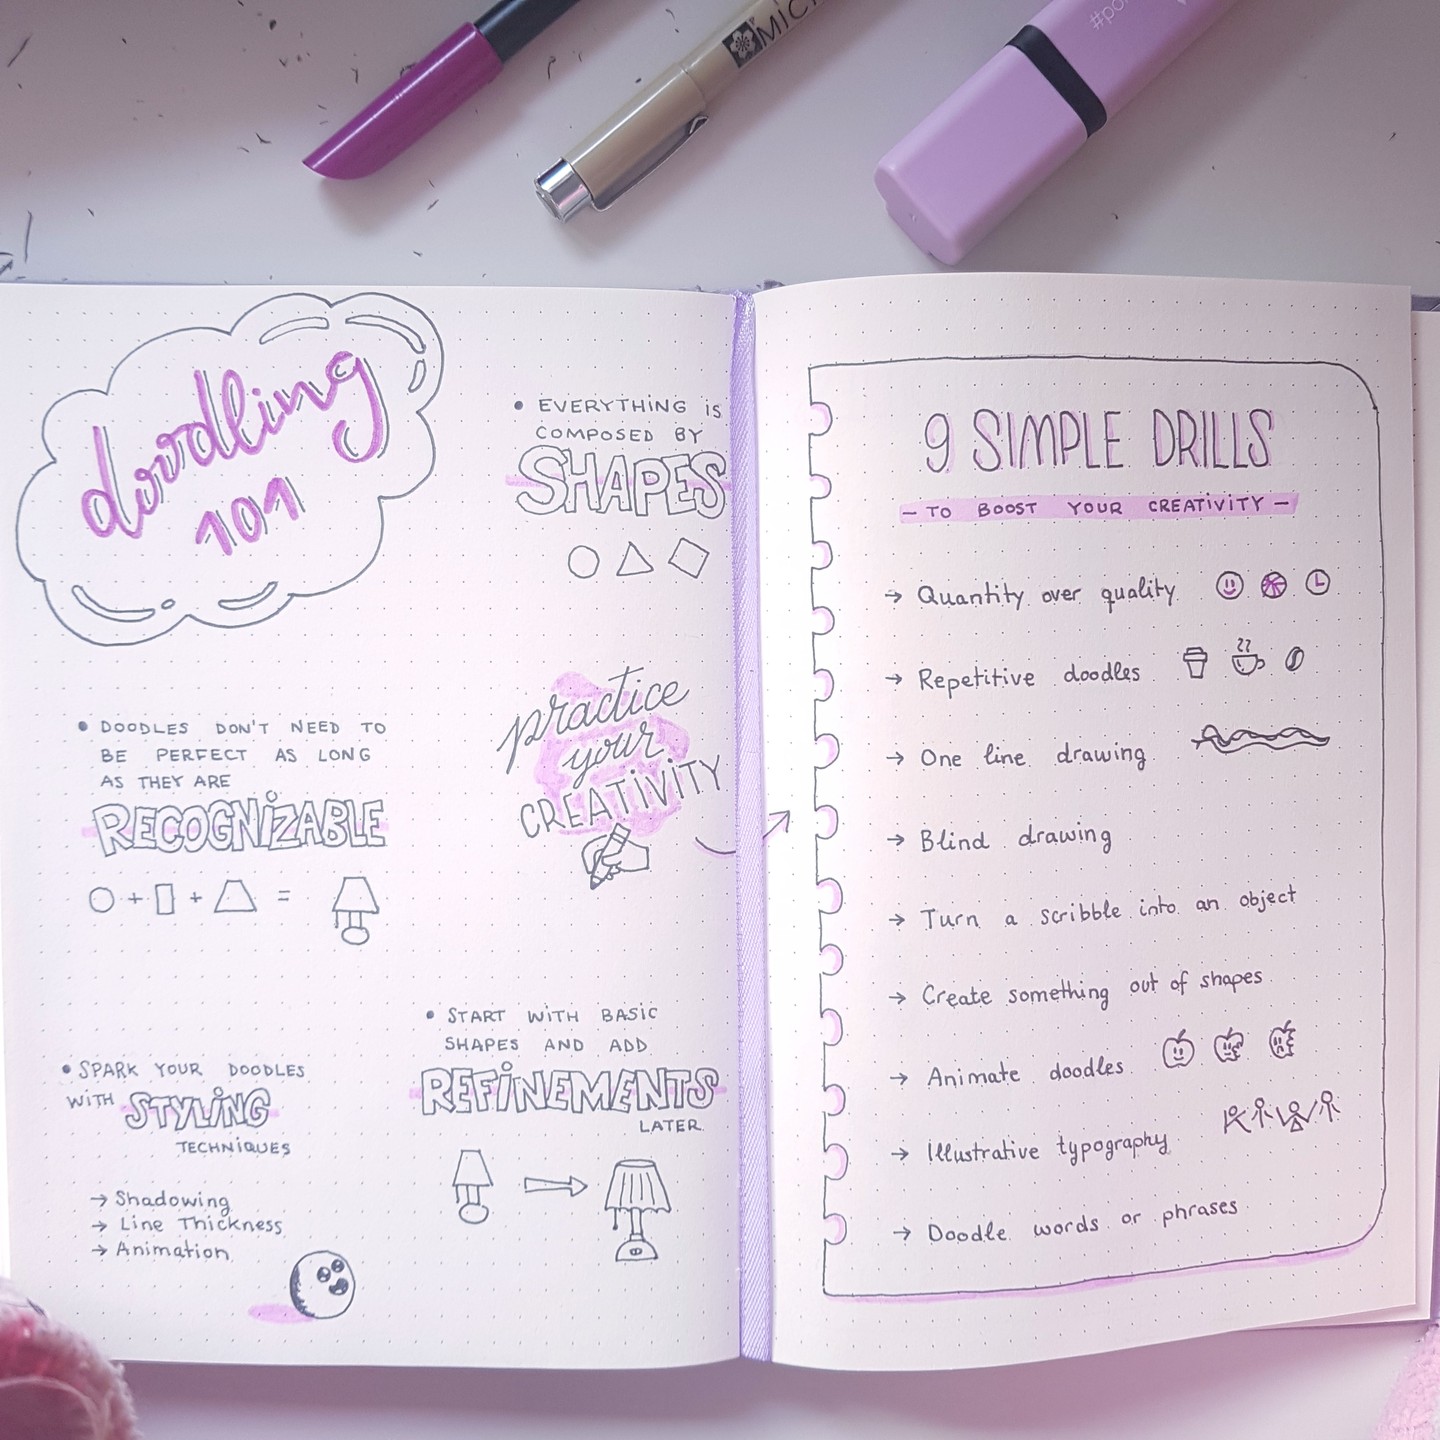 MIC
#po
doodling
101
• EVERYTHING is
COMPOSED BY
SHAPES
• DOODLES DON'T NEED TO
BE PERFECT AS LONG
AS THEY ARE
RECOGNiZABLE
practice
your
CREATiViTY
• SPARK YOUR DOODLES
WiTH STYLiNG
TECHNiQUES
→ Shadowing
→ Line Thickness
→ Animation
• START WiTH BASiC
SHAPES AND ADD
REFiNEMENTS
LATER
9 SIMPLE DRILLS
- TO BOOST YOUR CREATiViTY -
→ Quantity over quality
→ Repetitive doodles
→ One line drawing
→ Blind drawing
→ Turn a scribble into an object
→ Create something out of shapes
→ Animate doodles
→ Illustrative typography
→ Doodle words or phrases